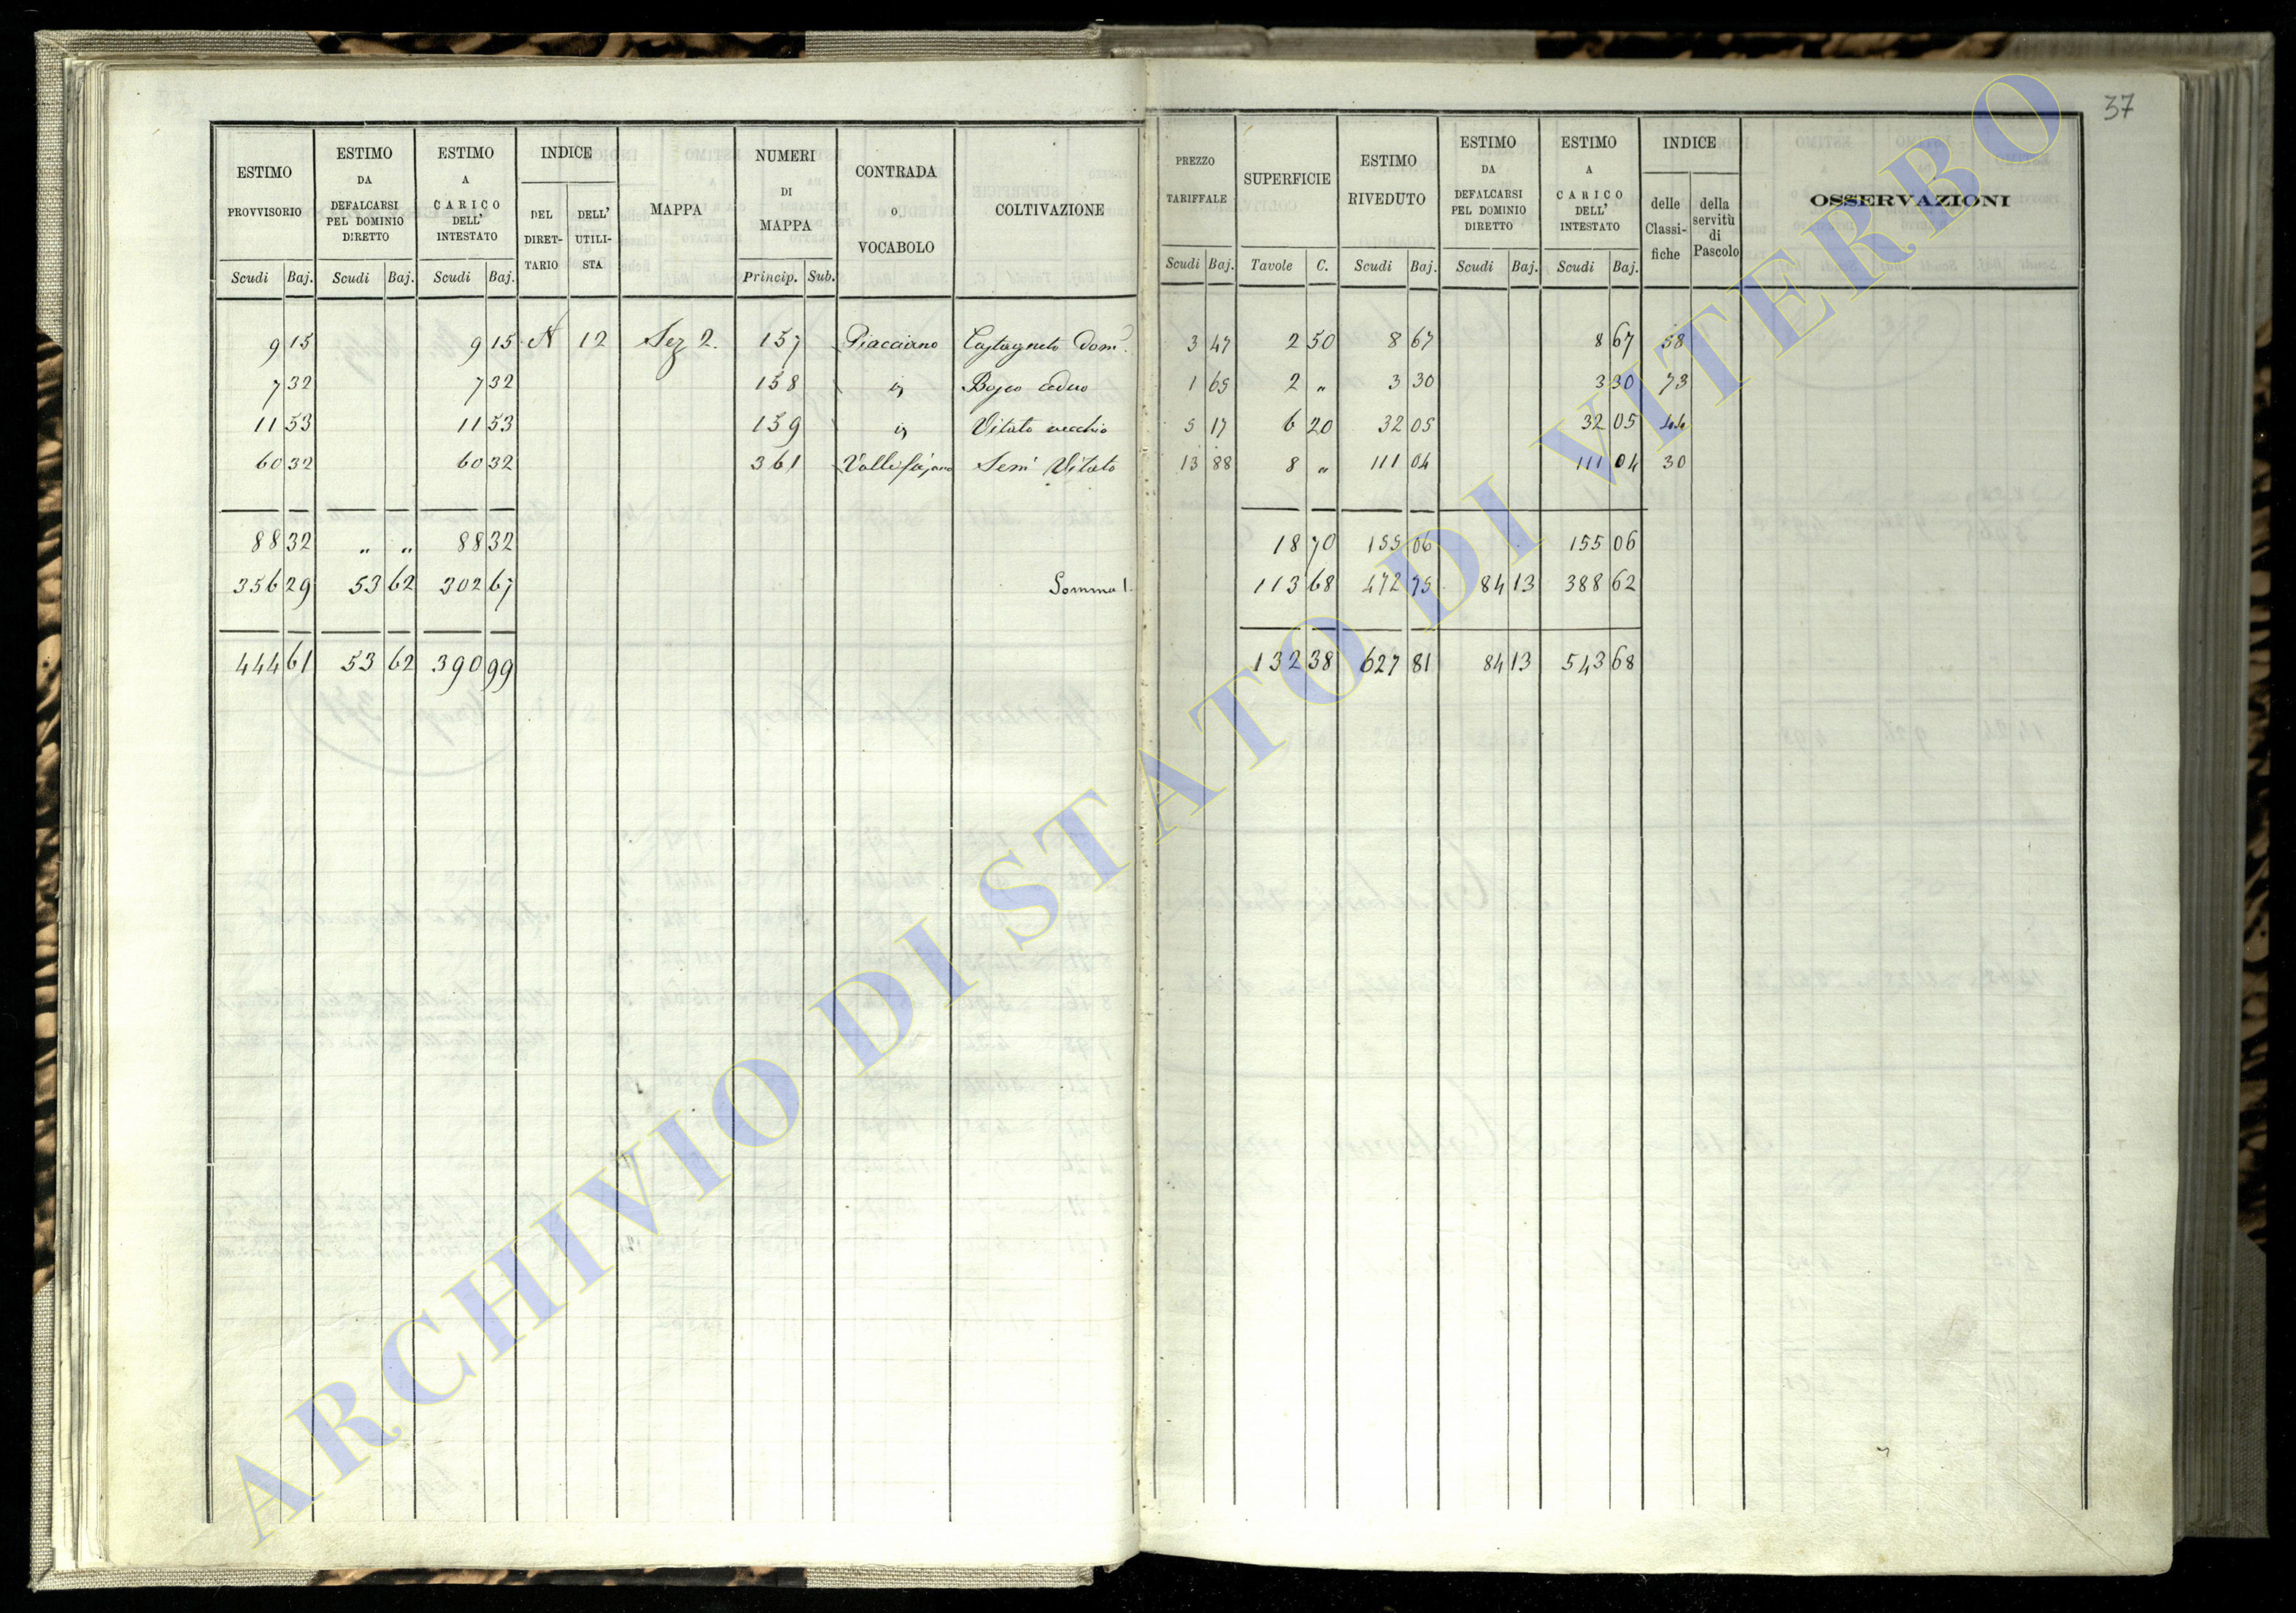 37
ESTIMO PROVVISORIO Scudi Baj. ESTIMO DA DEFALCARSI PEL DOMINIO DIRETTO Scudi Baj. ESTIMO A CARICO DELL' INTESTATO Scudi Baj. INDICE DEL DIRET-TARIO DELL' UTILI-STA MAPPA NUMERI DI MAPPA Princip. Sub. CONTRADA O VOCABOLO COLTIVAZIONE PREZZO TARIFFALE Scudi Baj. SUPERFICIE Tavole C. ESTIMO RIVEDUTO Scudi Baj. ESTIMO DA DEFALCARSI PEL DOMINIO DIRETTO Scudi Baj. ESTIMO A CARICO DELL' INTESTATO Scudi Baj. INDICE delle Classi-fiche della servitù di Pascolo OSSERVAZIONI
9 15 9 15 N 12 Sez 2. 157 Piacciano Castagneto Dom. 3 47 2 50 8 67 8 67 58
7 32 7 32 158 is Bosco ceduo 1 65 2 „ 3 30 3 30 73
11 53 11 53 159 is Vitato vecchio 5 17 6 20 32 05 32 05 44
60 32 60 32 361 Sem Vitato 13 88 8 „ 111 04 111 04 30
88 32 „ „ 88 32 18 70 155 06 155 06
356 29 53 62 302 67 Somma 113 68 472 75 84 13 388 62
444 61 53 62 390 99 132 38 627 81 84 13 543 68
ARCHIVIO DI STATO DI VITERBO